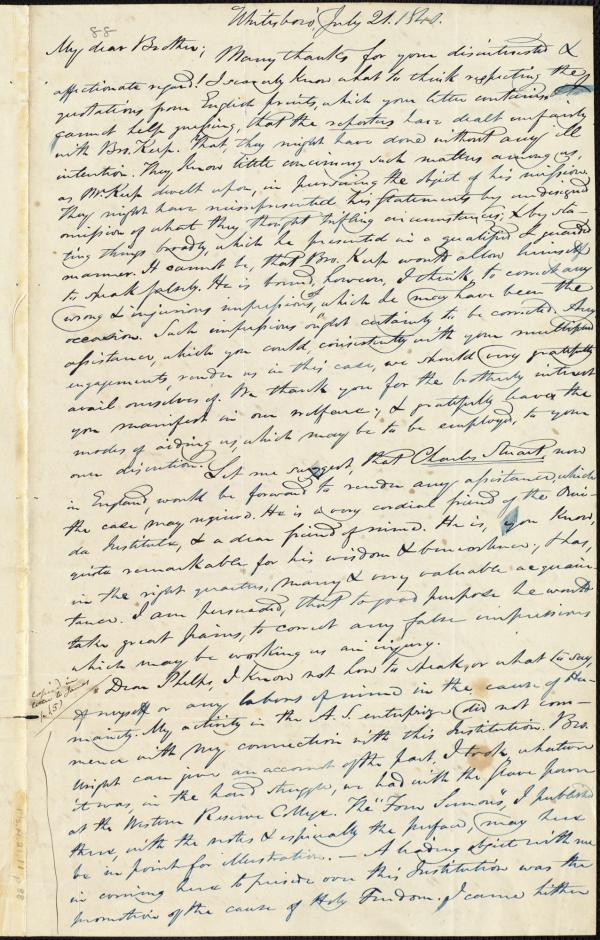 88
Whitesboro' July 21. 1840.
My dear Brother; Many thanks for your disinterested &
affectionate regard! I scarcely know what to think respecting the
quotations from English prints, which your letter contains. I
cannot help guessing, that the reporters have dealt unfairly
with Bro. Keep. That they might have done without any ill
intention. They know little concerning such matters among us,
as Mr Keep dwelt upon, in pursuing the object of his mission.
They might have misrepresented his statements by undesigned
omission of what they thought trifling circumstances; & by sta-
ting things broadly, which he presented in a qualified & guarded
manner. It cannot be, that Bro. Keep would allow himself
to speak falsely. He is bound, however, I think, to correct any
wrong & injurious impressions, of which he may have been the
occasion. Such impressions ought certainly to be corrected. Any
assistance, which you could, consistently with your multiplied
engagements, render us in this case, we should very gratefully
avail ourselves of. We thank you for the brotherly interest
you manifest in our welfare; & gratefully leave the
modes of aiding us, which may be to be employed, to your
own discretion. Let me suggest, that Charles Stuart, now
in England, would be forward to render any assistance, which
the case may require. He is a very cordial friend of the Onei-
da Institute, & a dear friend of mine. He is, you know,
quite remarkable for his wisdom & benevolence; & has,
in the right quarters, many & very valuable acquain-
tance. I am persuaded, that to good purpose he would
take great pains, to correct any false impressions
which may be working us an injury.
copied in
letter to
(5)
Dear Phelps, I know not how to speak, or what to say,
of myself or any labors of mine in the cause of Hu-
manity. My activity in the A. S. enterprize did not com-
mence with my connection with this Institution. Bro.
Wright can give an account of the part, I took, whatever
it was, in the hard struggle, we had with the slave power
at the Western Reserve College. The "Four Sermons", I published
there, with the notes & especially the preface, may here
be in point for illustration. — A leading object with me
in coming here to preside over this Institution was the
promotion of the cause of Holy Freedom. I came hither